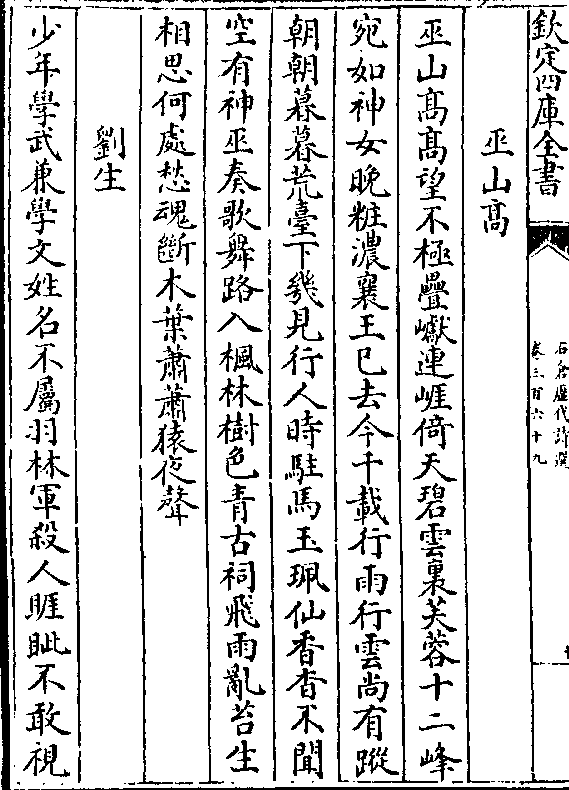 欽定四庫全書
石倉歷代詩選
卷三百六十九
巫山高
巫山髙髙望不極疊巘連崕倚天碧雲裏芙蓉十二峰
宛如神女晚粧濃襄王已去今千載行雨行雲尚有蹤
朝朝暮暮荒臺下幾見行人時駐馬玉珮仙香杳不聞
空有神巫奏歌舞路入楓林樹色青古祠飛雨亂苔生
相思何處愁魂斷木葉蕭蕭猿夜聲
劉生
少年學武兼學文姓名不屬羽林軍殺人睚眦不敢視